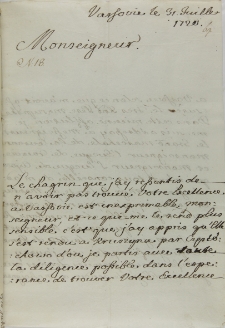 Varsovie le 31 Juillet
1728.
Monseigneur.
Le chagrin que j'ay ressentis de
n'avoir pas trouvée Votre Excellence
a Varsovie est inexprimable, mon-
seigneur, et ce qui me le rend plus
sensible, c'est que j'ay appris qu'Elle
s'est rendu a
d'ou je partis avec toute
la diligence possible, dans l'espe-
rance de trouver Votre Excellence